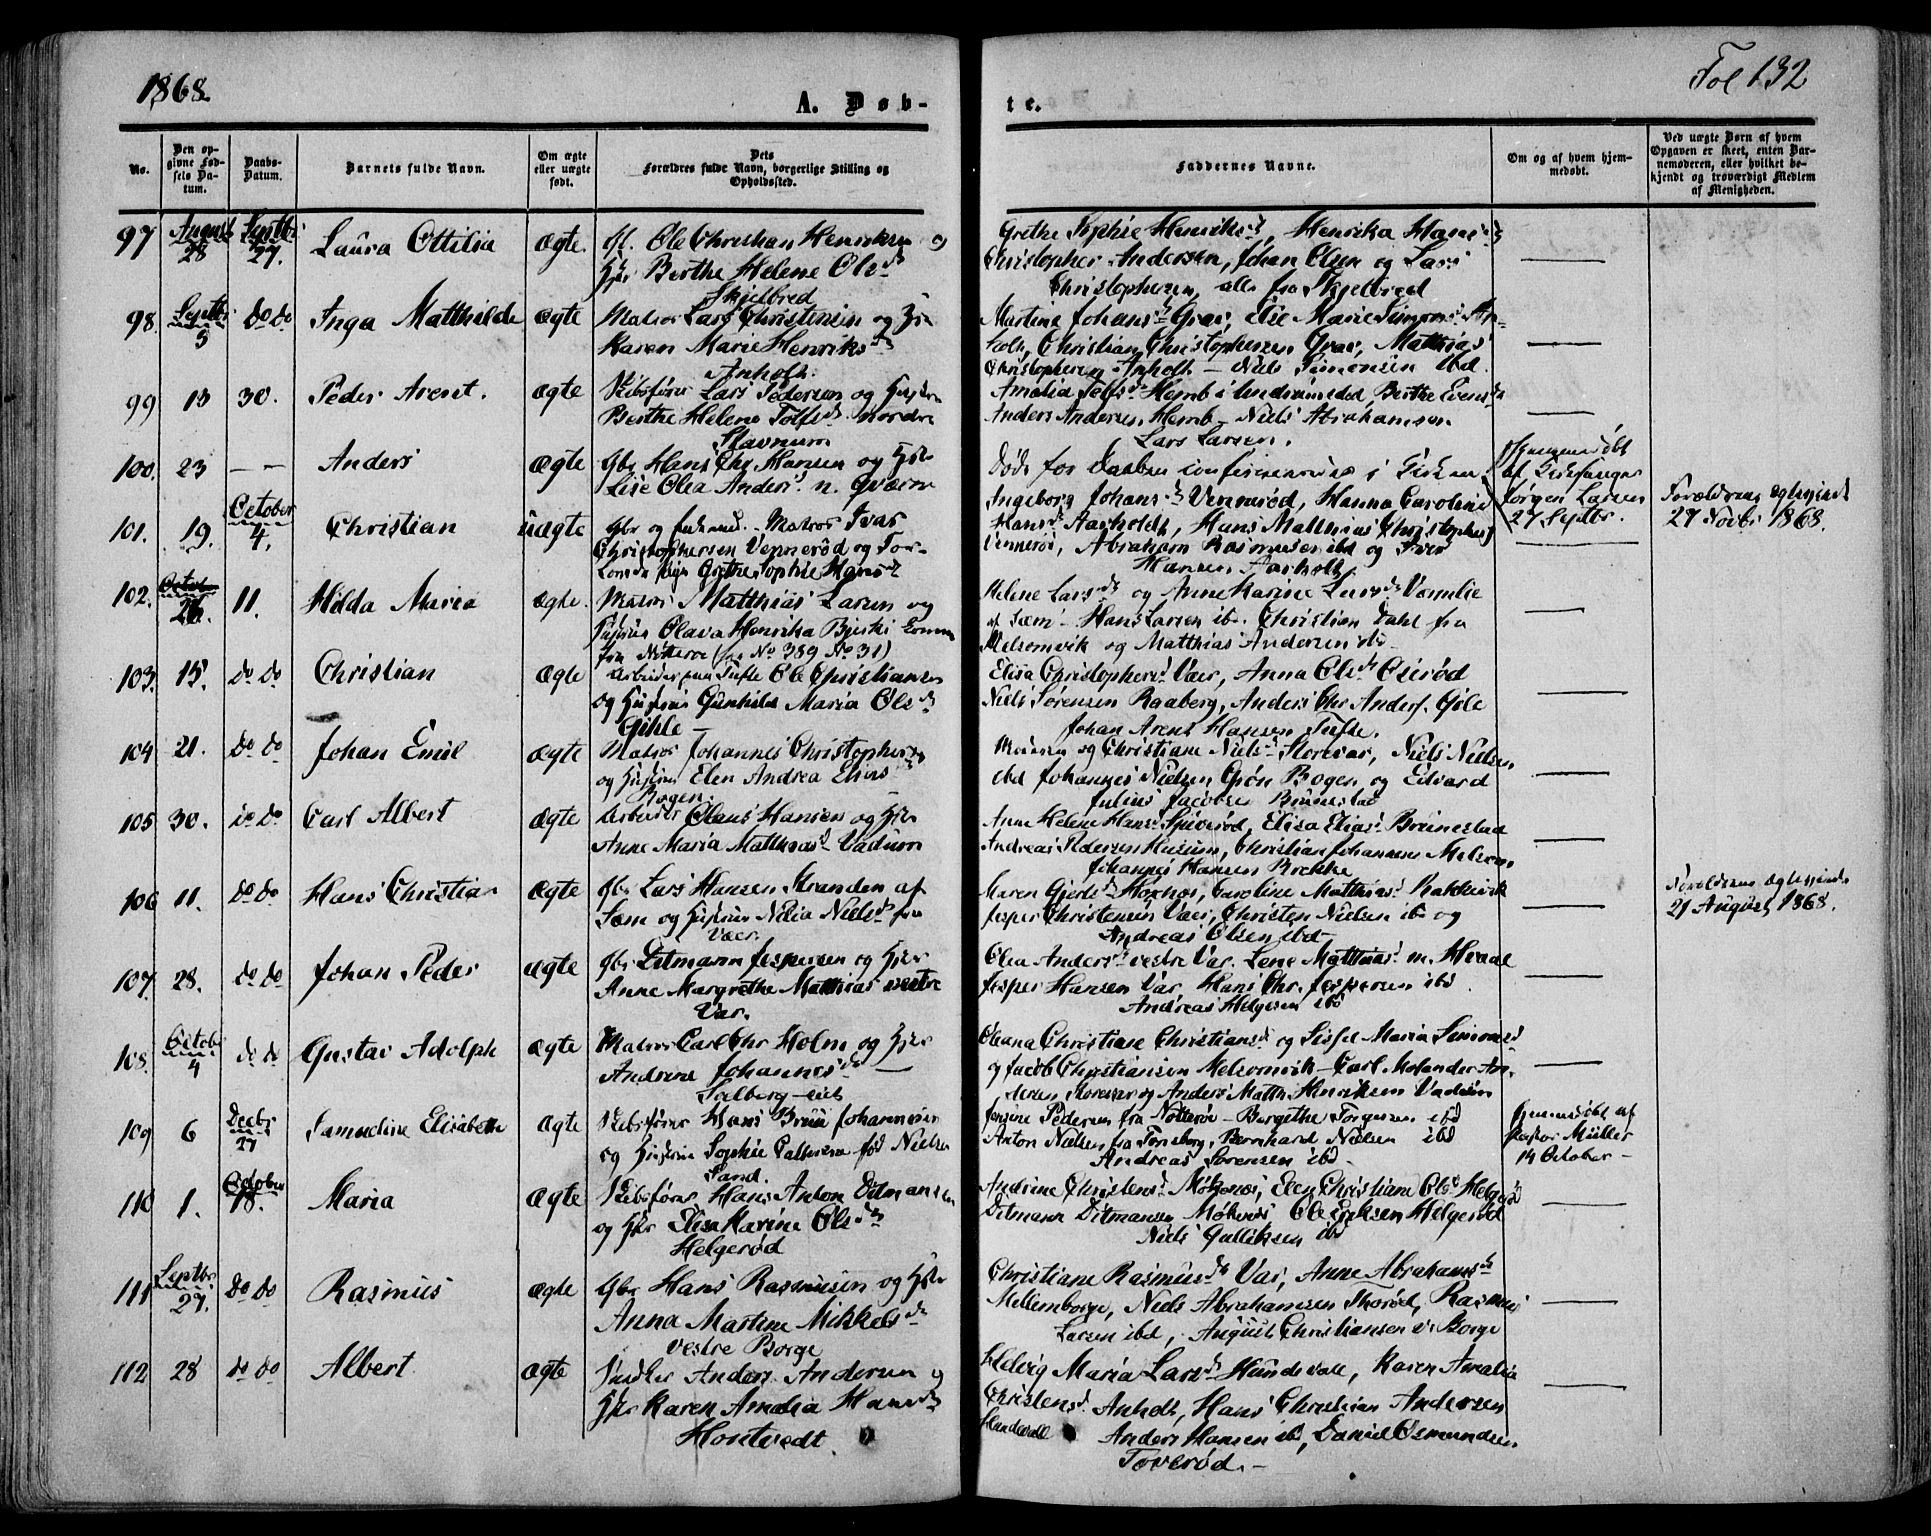 1868
Fol 132
A. Døb-
te.
No.
Den op-
givne Fød-
sels Da-
tum.
Daabs-
Datum.
Barnets fulde Navn.
Om ægte
eller uægte
født.
Dets
Forældres fulde Navn, borgerlige Stilling og
Opholdssted.
Faddernes Navne.
Om og af hvem hjem-
medøbt.
Ved uægte Børn af hvem
Opgaven er skeet, enten Bar-
nemoderen, eller hvilket be-
kjendt og troværdigt Medlem
af Menigheden.
97 August 28 Septbr 27. Laura Ottilia ægte. Ole Christian Henriksen og
Birthe Helene Ols d
Skjelbred
Grethe Sophie Henriks d, Henrika Hans d
Christopher Andersen, Johan Olsen og Lars
Christophersen, alle fra Skjelbred
98. Septbr 5 do do Inga Matthilde ægte Matros Lars Christensen og
Karen Marie Henriks d
Anholt.
Martine Johans d Grav, Elie Marie Simons d An-
holt, Christian Christophersen Grav, Matthias
Christophersen Anholt - Niels Simonsen ibd.
99 13 30. Peder Arent. ægte Skibsfører Lars Pedersen og
Berthe Helene Tolfs d nordre
Stavnum
Amalia Tolfs d Hemb i Undrumsdal, Birthe Evens d
Anders Andersen Hemb - Niels Abrahamsen
Lars Larsen.
100. 23 — — Anders ægte Gbr Hans Chr. Hansen og
Lise Olea Anders d. n. Qværne
Døde før Daaben i Kirken
Hjemmedøbt
af Kirkesanger
Jørgen Larsen
27 Septbr.
101. 19. October 4. Christian uægte Gbr og Matros Ivar
Christophersen Vennerød og For-
Grethe Sophie Hans d
Ingeborg Johans d Vennerød, Hanna Caroline
Hans d Aarholdt, Hans Matthias Christophersen
Vennerød, Abraham Rasmussen ibd og Iver
Hansen Aarholt.
Forældrene
27 Novbr 1868.
102. 26. 11. Hilda Maria ægte. Matros Matthias Larsen og
Hustru Olava Henrika
fra Nøtterøe No 389 No 31)
Helene Lars d og Anne Karine Lars d
af Sæm - Hans Larsen ibd. Christian Dahl fra
Melsomvik og Matthias Andersen ibd.
103. 15. do do Christian ægte Arbeider paa Tufte Ole Christiansen
og Hustru Gunhild Maria Ols d
Gihle -
Elisa Christophers d Vær, Anna Ols d
Niels Sørensen Raaberg, Anders Chr Anders. Gile
Johan Arent Hansen Tufte.
104 21. do do Johan Emil ægte Matros Johannes Christophersen
og Hustru Elen Andrea Elias d
Bogen.
og Christiane Niels d Storevar, Niels Nielsen
ibd Johannes Nielsen Grøn Bogen og Edvard
Julius Jacobsen Brunestad
105 30. do do Carl Albert ægte Arbeider Claus Hansen og
Anne Maria Matthias d Vadum
Anne Helene Hans d, Elisa Elias d Brunestad
Andreas Pedersen Husum, Christian Johannesen Melsom,
Johannes Hansen Brekke
106 11. do do Hans Christian ægte Gbr Lars Hansen Stranden af
Sæm og Hustru Nilia Niels d fra
Vær.
Maren Gjerds d, Caroline Matthias d Rakkevik
Jesper Christensen Vær, Christen Nielsen ibd og
Andreas Olsen ibd -
Forældrene
21 August 1868.
107. 28. do do Johan Peder ægte Gbr Ditmann Jespersen og
Anne Margrethe Matthias d vestre
Vær.
Olia Anders d vestre Vær. Lene Matthias d m. Hvaal
Jesper Hansen Vær, Hans Chr. Jespersen ibd.
Andreas Helgesen ibd
108. Octobr 4 do do Gustav Adolph ægte Matros Carl Chr Holm og
Andrine Johannes d
Solberg -eiet
Oleana Christiane Christians d og Sissel Maria Simons d
og Jacob Christiansen Melsomvik - Carl Molander An-
dersen og Anders Matth. Henriksen Vadum
109 6 Decbr 27 Samueline Elisabeth ægte Skibsfører Hans Bruu Johannesen
og Hustru Sophie Cathrine fød Nielsen
Sand.
Jensine Pedersen fra Nøtterøe - Bergethe Torgersen ibd
Anton Nielsen fra Tønsberg, Bernhard Nielsen ibd
Andreas Sørensen ibd -
Hjemmedøbt af
Pastor Müller
14 October -
110 1. October 18. Maria ægte Skibsfører Hans Anton Ditmansen
og Elise Marine Ols d
Helgerød
Andrine Christens d Møkenæs, Elen Christiane Ols d Helgerød
Ditmann Ditmansen Møkenæs, Ole Eriksen Helgerød
Niels Gulliksen ibd
111 Septbr 27. do do Rasmus ægte Gbr Hans Rasmussen og
Anna Martine Mikkels d
vestre Borge
Christiane Rasmus d Vær, Anne Abrahams d
Mellemborge, Niels Abrahamsen Thorød, Rasmus
Larsen ibd, August Christiansen v. Borge
112 28 do do Albert ægte Snedker Anders Andersen og
Karen Amalia Hans d
Hontvedt
Helvig Maria Lars d Hundsvall, Karen Amalia
Christens d Anholt, Hans Christian Andersen
Hundsvall Anders Hansen ibd, Daniel Osmundsen
Toverød. -